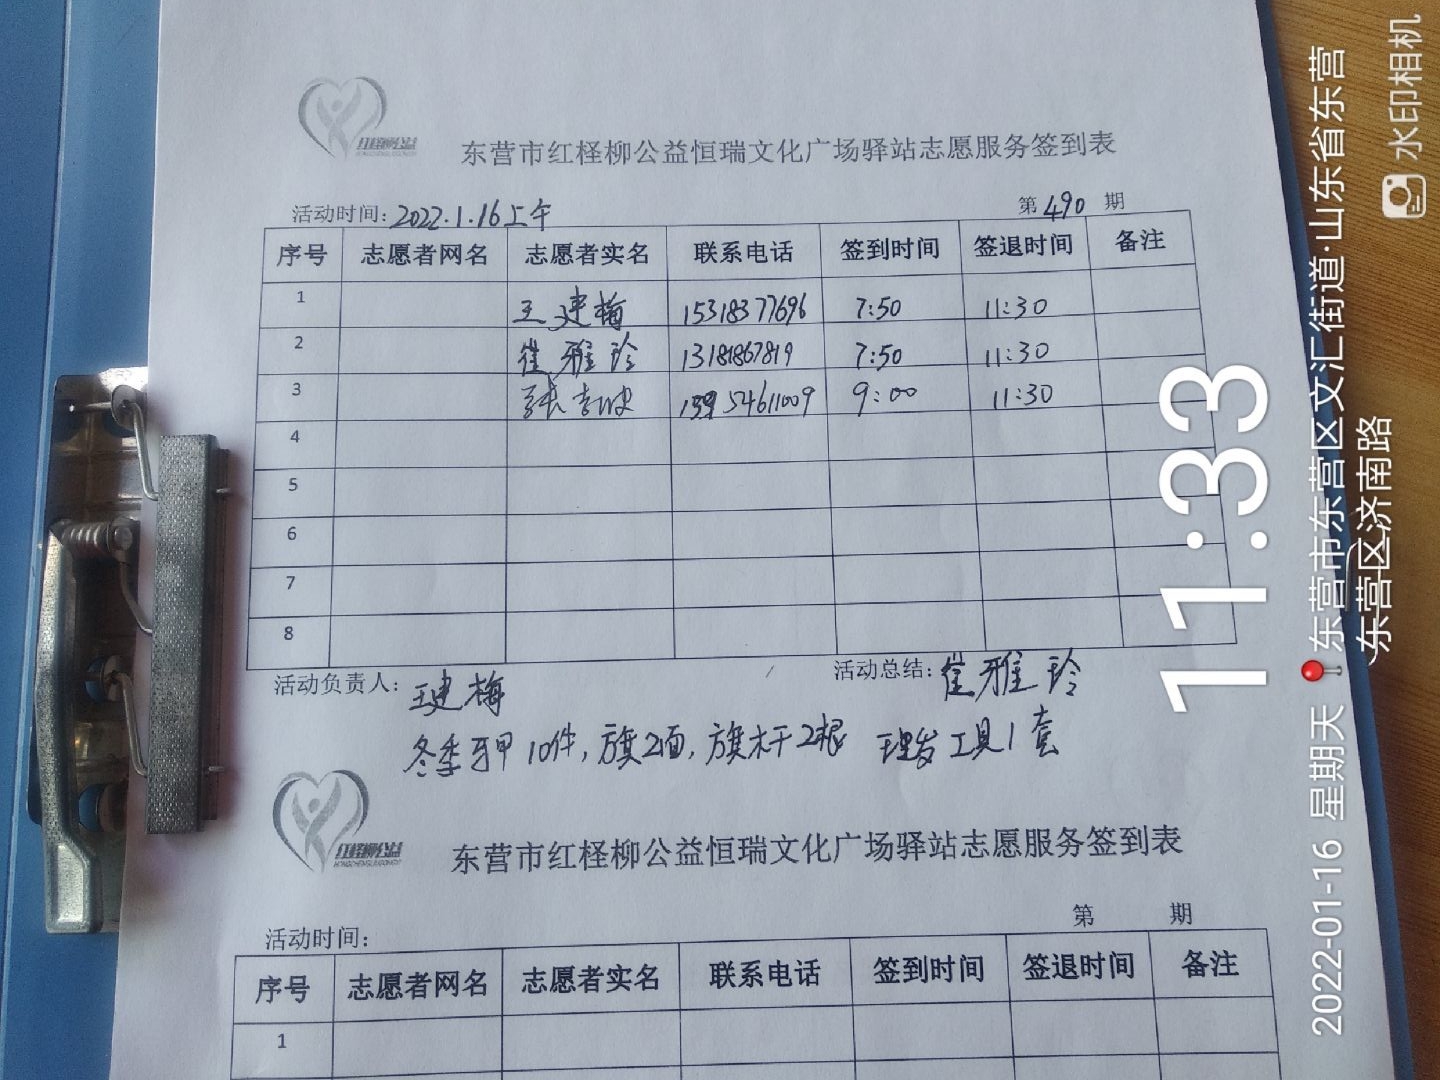 红柽柳公益
东营市红柽柳公益恒瑞文化广场驿站志愿服务签到表
活动时间：2022.1.16上午 第490期
序号 志愿者网名 志愿者实名 联系电话 签到时间 签退时间 备注
1 王建梅 15318377696 7:50 11:30
2 崔雅玲 13181867819 7:50 11:30
3 13954611009 9:00 11:30
4
5
6
7
8
活动负责人：王建梅 活动总结：崔雅玲
冬季马甲10件，旗2面，旗杆2根 理发工具1套
红柽柳公益
东营市红柽柳公益恒瑞文化广场驿站志愿服务签到表
活动时间： 第 期
序号 志愿者网名 志愿者实名 联系电话 签到时间 签退时间 备注
1
11:33
2022-01-16 星期天 东营市东营区文汇街道·山东省东营
东营区济南路
水印相机